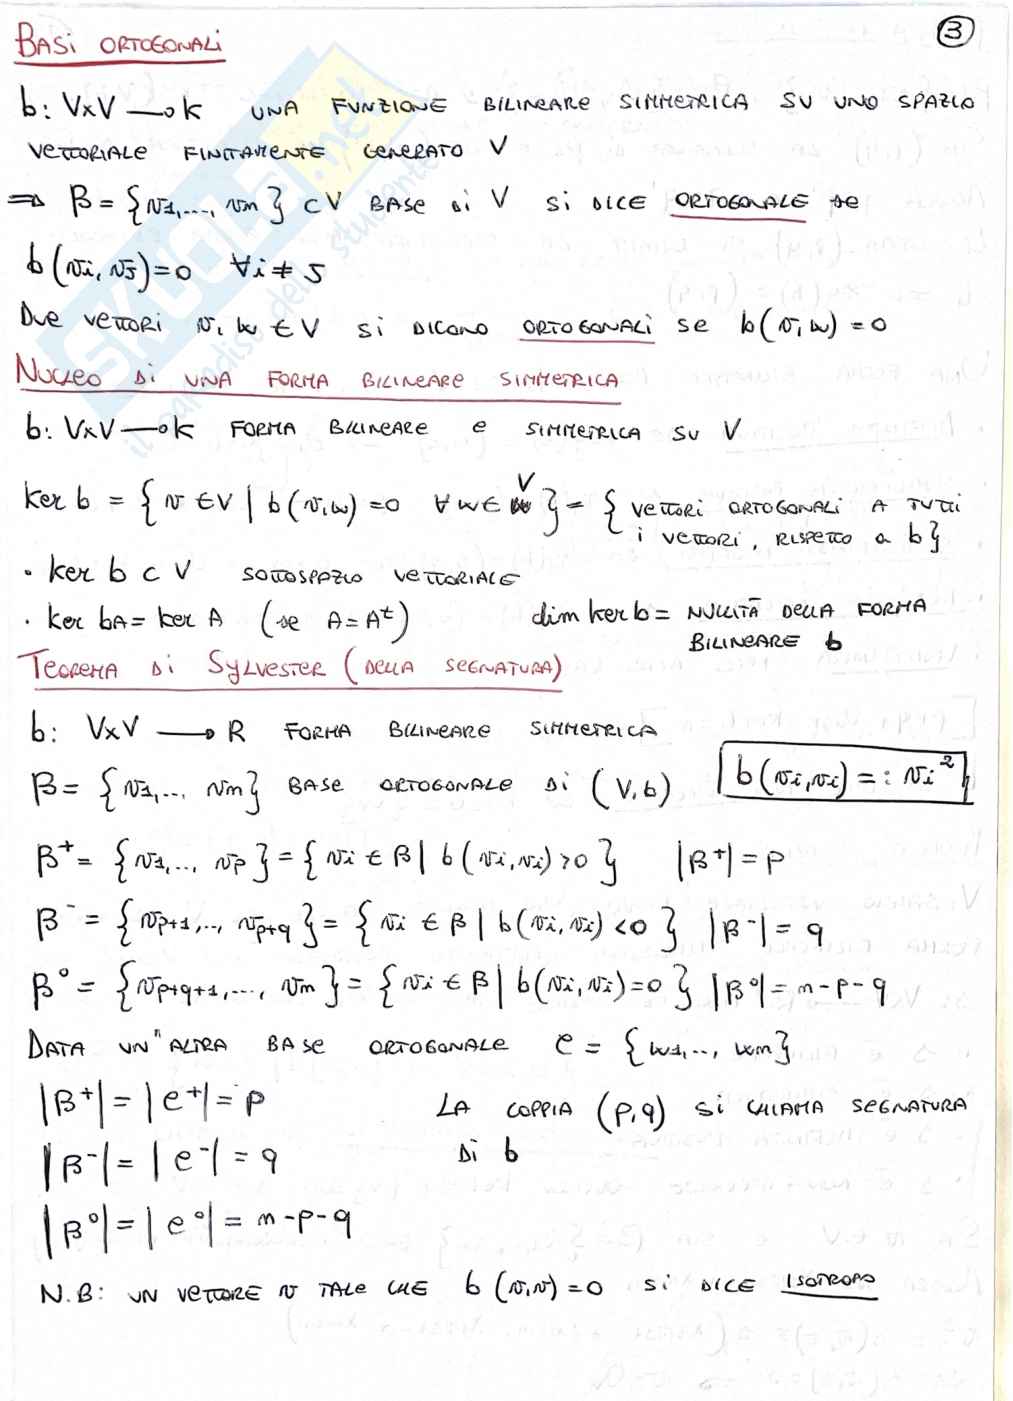 3
BASI ORTOGONALI
b: V×V → K UNA FUNZIONE BILINEARE SIMMETRICA SU UNO SPAZIO
VETTORIALE FINITAMENTE GENERATO V
⇒ β = {v1,..., vn} ⊂ V BASE di V si DICE ORTOGONALE se
b(vi, vj) = 0 ∀i ≠ J
Due vettori v, w ∈ V si DICONO ORTOGONALI se b(v, w) = 0
NUCLEO Di UNA FORMA BILINEARE SIMMETRICA
b: V×V → K FORMA BILINEARE e SIMMETRICA SU V
ker b = {v ∈ V | b(v,w) = 0 ∀w ∈ V} = { vettori ORTOGONALI A TUTTI
i vettori, RISPETTO a b}
• ker b ⊂ V SOTTOSPAZIO VETTORIALE
• ker bA = ker A (se A = Aᵗ) dim ker b = NULLITÀ DELLA FORMA
BILINEARE b
TEOREMA Di SYLVESTER (DELLA SEGNATURA)
b: V×V → R FORMA BILINEARE SIMMETRICA
β = {v1,..., vn} BASE ORTOGONALE Di (V, b) b(vi,vi) =: vi²
β⁺ = {v1,.., vp} = {vi ∈ β | b(vi,vi) > 0} |β⁺| = p
β⁻ = {vp+1,.., vp+q} = {vi ∈ β | b(vi,vi) < 0} |β⁻| = q
β° = {vp+q+1,..., vn} = {vi ∈ β | b(vi,vi) = 0} |β°| = n-p-q
DATA UN" ALTRA BASE ORTOGONALE e = {w1,.., wn}
|β⁺| = |e⁺| = p LA COPPIA (p,q) si CHIAMA SEGNATURA
|β⁻| = |e⁻| = q Di b
|β°| = |e°| = n-p-q
N.B: UN VETTORE v TALE CHE b(v,v) = 0 si DICE ISOTROPO
SKUOLA.net
il paradiso dello studente